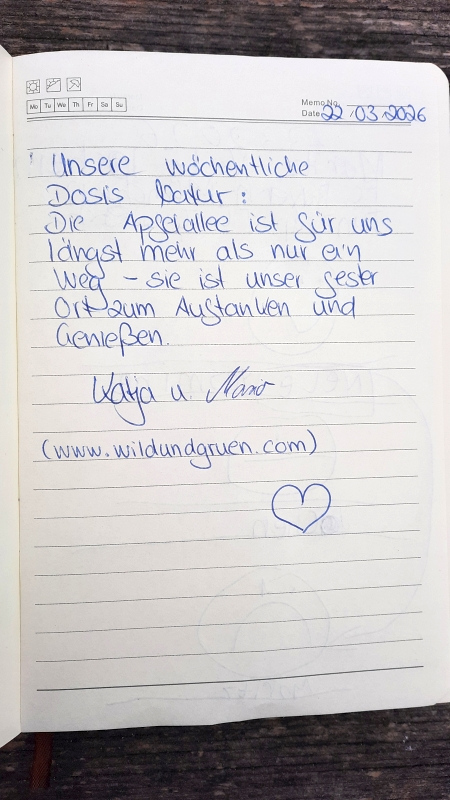 Mo Tu We Th Fr Sa Su
Memo No.
Date 22/03/2026
Unsere wöchentliche
Dosis Natur:
Die Apfelallee ist für uns
längst mehr als nur ein
Weg – sie ist unser fester
Ort zum Auftanken und
Genießen.
Katja u.
(www.wildundgruen.com)